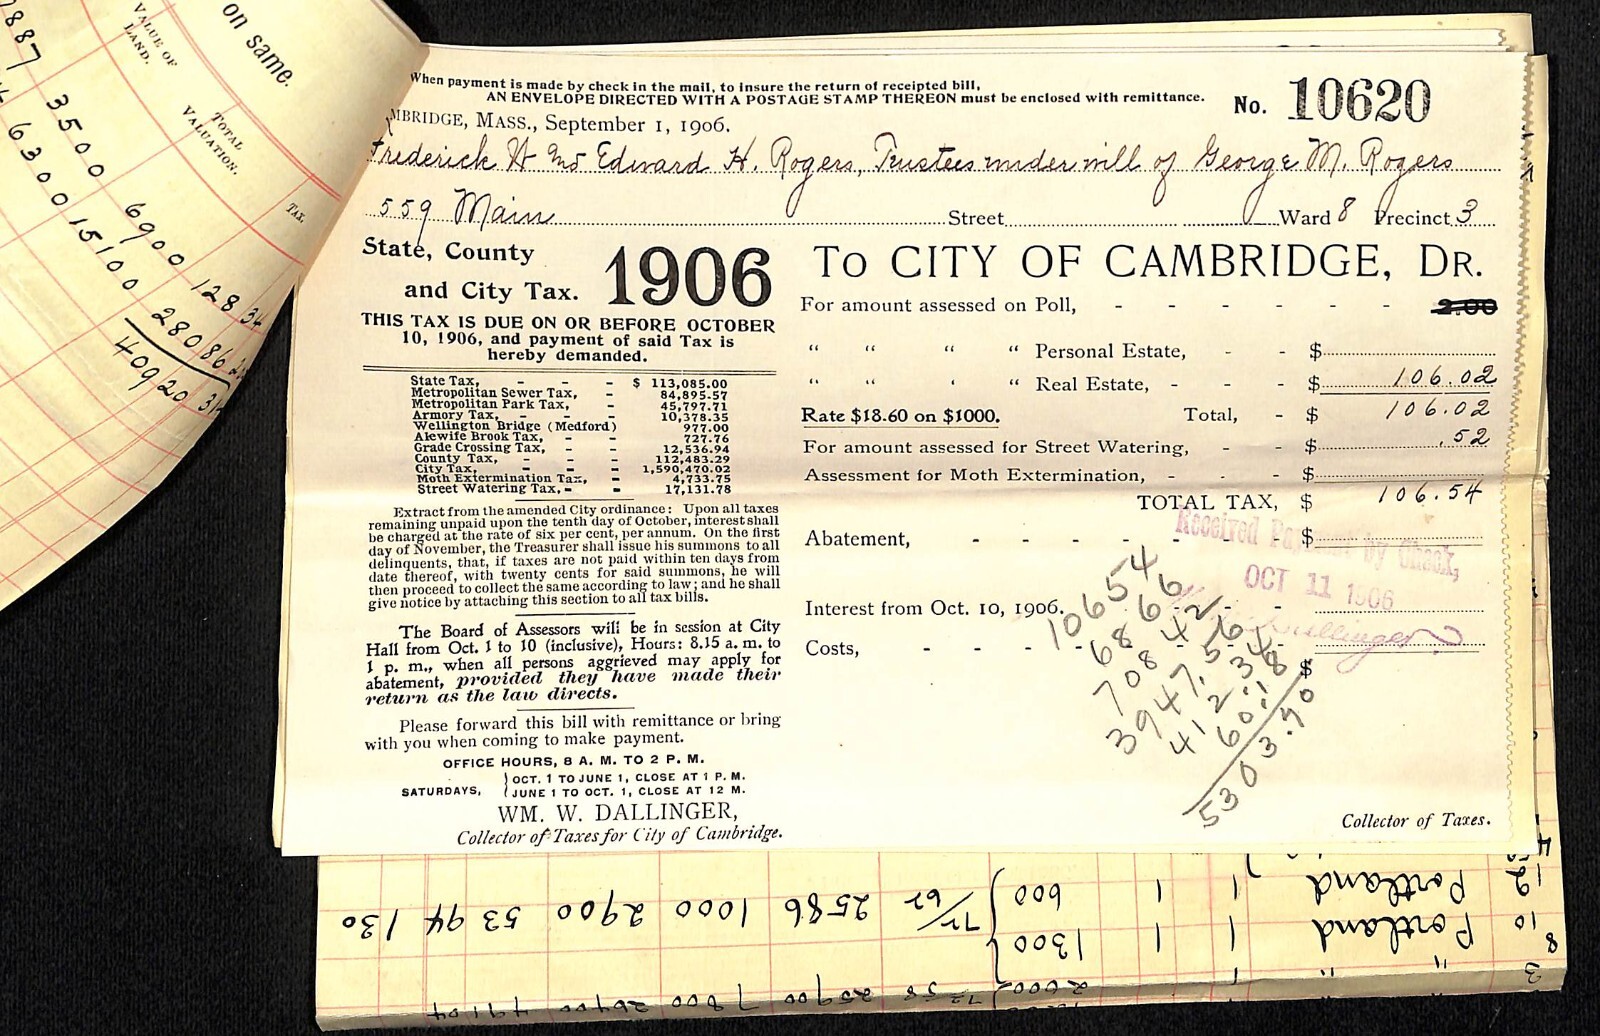 on same.
VALUE OF
LAND.
TOTAL
VALUATION.
TAX.
887
3500 6900 128 34
6300 15100 280 86
40920 31
When payment is made by check in the mail, to insure the return of receipted bill,
AN ENVELOPE DIRECTED WITH A POSTAGE STAMP THEREON must be enclosed with remittance.
No. 10620
MBRIDGE, MASS., September 1, 1906.
Frederick H and Edward H. Rogers, Trustees under will of George M. Rogers
559 Main Street Ward 8 Precinct 3
State, County
and City Tax. 1906
THIS TAX IS DUE ON OR BEFORE OCTOBER
10, 1906, and payment of said Tax is
hereby demanded.
State Tax, - - - $ 113,085.00
Metropolitan Sewer Tax, - 84,895.57
Metropolitan Park Tax, - 45,797.71
Armory Tax, - - - 10,378.35
Wellington Bridge (Medford) 977.00
Alewife Brook Tax, - - 727.76
Grade Crossing Tax, - - 12,536.94
County Tax, - - - 112,483.29
City Tax, - - - 1,590,470.02
Moth Extermination Tax, - 4,733.75
Street Watering Tax, - - 17,131.78
Extract from the amended City ordinance: Upon all taxes
remaining unpaid upon the tenth day of October, interest shall
be charged at the rate of six per cent, per annum. On the first
day of November, the Treasurer shall issue his summons to all
delinquents, that, if taxes are not paid within ten days from
date thereof, with twenty cents for said summons, he will
then proceed to collect the same according to law; and he shall
give notice by attaching this section to all tax bills.
The Board of Assessors will be in session at City
Hall from Oct. 1 to 10 (inclusive), Hours: 8.15 a. m. to
1 p. m., when all persons aggrieved may apply for
abatement, provided they have made their
return as the law directs.
Please forward this bill with remittance or bring
with you when coming to make payment.
OFFICE HOURS, 8 A. M. TO 2 P. M.
SATURDAYS, { OCT. 1 TO JUNE 1, CLOSE AT 1 P. M.
JUNE 1 TO OCT. 1, CLOSE AT 12 M.
WM. W. DALLINGER,
Collector of Taxes for City of Cambridge.
TO CITY OF CAMBRIDGE, DR.
For amount assessed on Poll, - - - - - - 2.00
" " " " Personal Estate, - - $
" " " " Real Estate, - - - $ 106.02
Rate $18.60 on $1000. Total, - $ 106.02
For amount assessed for Street Watering, - - $ .52
Assessment for Moth Extermination, - - - $
TOTAL TAX, $ 106.54
Abatement, - - - - - - - $
Received Payment by Check,
OCT 11 1906
Interest from Oct. 10, 1906.
Dallinger
Costs, - - - - - -
$
10654
6866
70842
3947.56
412 34
60.18
5303.90
Collector of Taxes.
12 Portland 1 1 600
10 Portland 1 1 1300 72/62 2586 1000 2900 53 94 130
8
3 " " 1 2000 72 58 25900 7800 26400 491 04